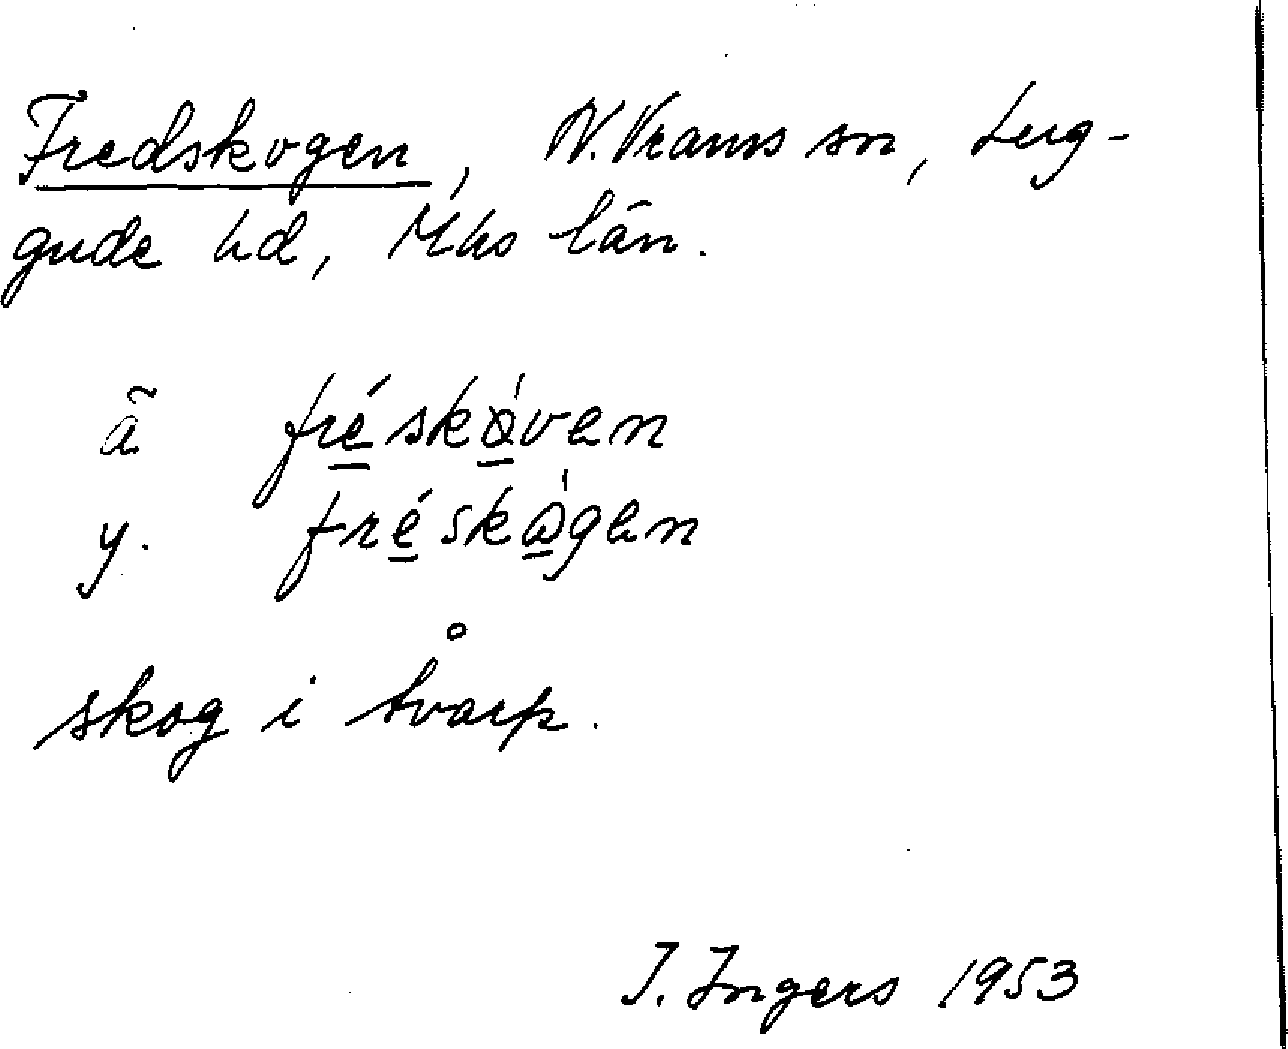 Fredskogen, N. Vrams sn, Lug-
gude hd, Mhs län.
ä fréskǫ́ven
y. fréskǫ́gen
skog i Åvarp.
I. Ingers 1953